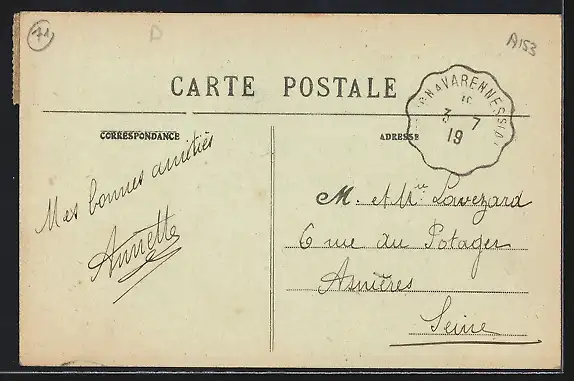 71
D
A153
CARTE POSTALE
CORRESPONDANCE
ADRESSE
N A VARENNES S/A
3 7
19
Mes bonnes amitiés
Annette
M. et Mme Lavezard
6 rue du Potager
Asnières
Seine